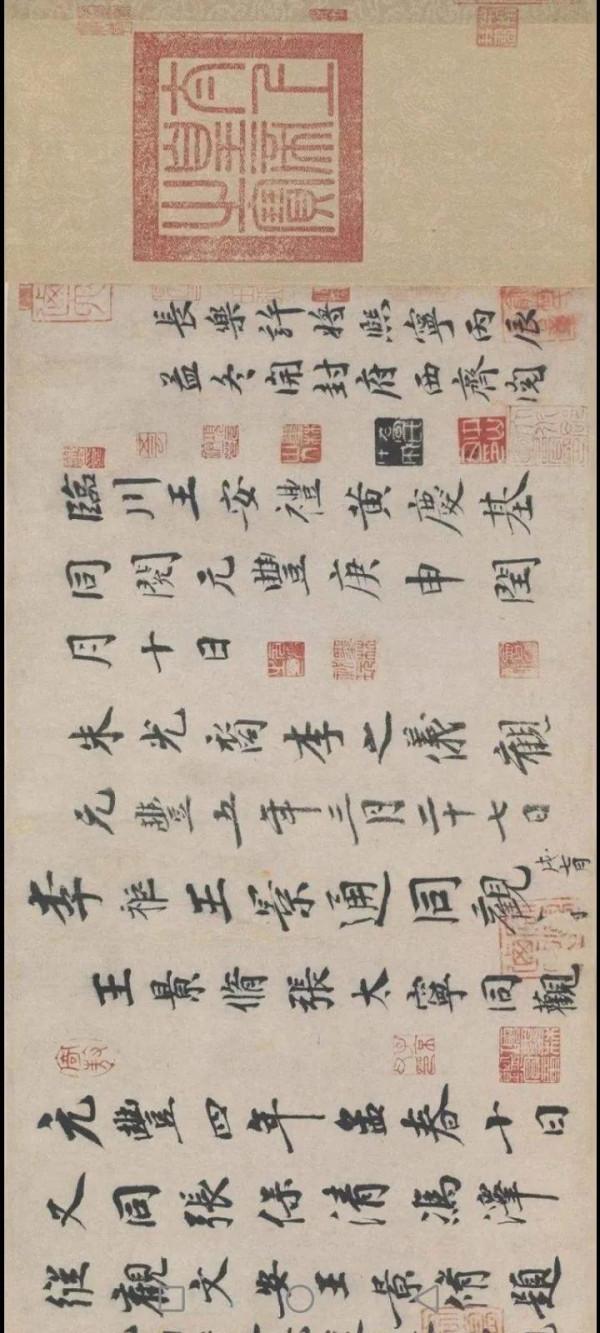 太上皇帝之寶
長樂許將熙寧丙辰
孟冬開封府西齋閱
臨川王安禮黃慶基
同閱元豐庚申閏
月十日
朱光裔李之儀觀
元豐五年三月二十七日
李秬王景通同觀
王景脩張太寧同觀
元豐四年孟春十日
又同張保清馮澤
縱觀文安王景脩題